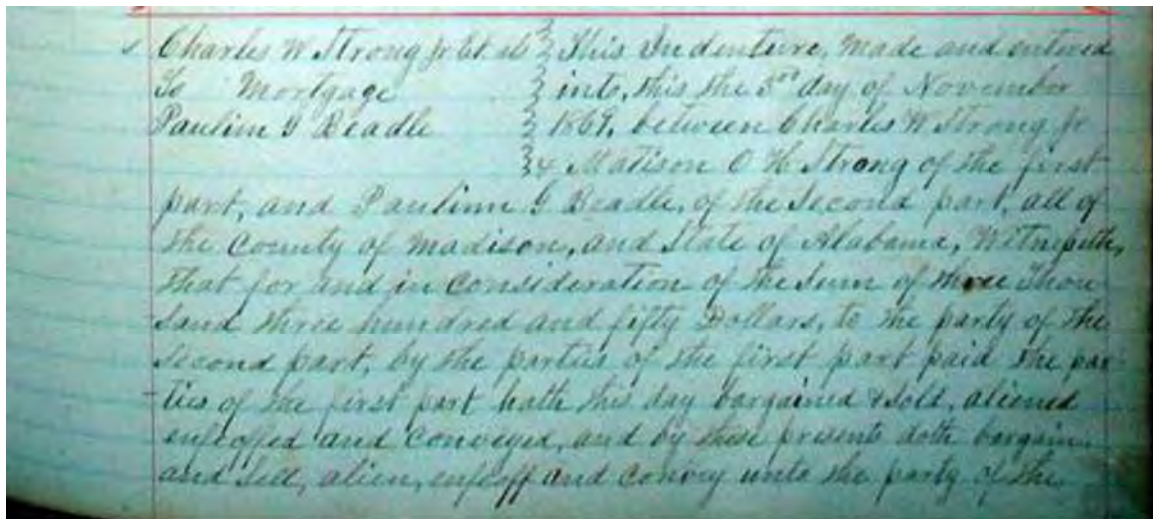 Charles W Strong Jr Et al } This Indenture, made and entered
To Mortgage } into, this the 3rd day of November
Paulim G Beadle } 1869, between Charles W Strong Jr
} & Matison O H Strong of the first
part, and Paulinn G Beadle, of the Second part, all of
the County of Madison, and State of Alabama, Witnesseth,
that for and in Consideration of the Sum of three Thou
Sand three hundred and fifty Dollars, to the party of the
Second part, by the parties of the first part paid the par
ties of the first part hath this day bargained & Sold, aliened
enfeoffed and Conveyed, and by these presents doth bargain
and Sell, alien, enfeoff and Convey unto the party of the